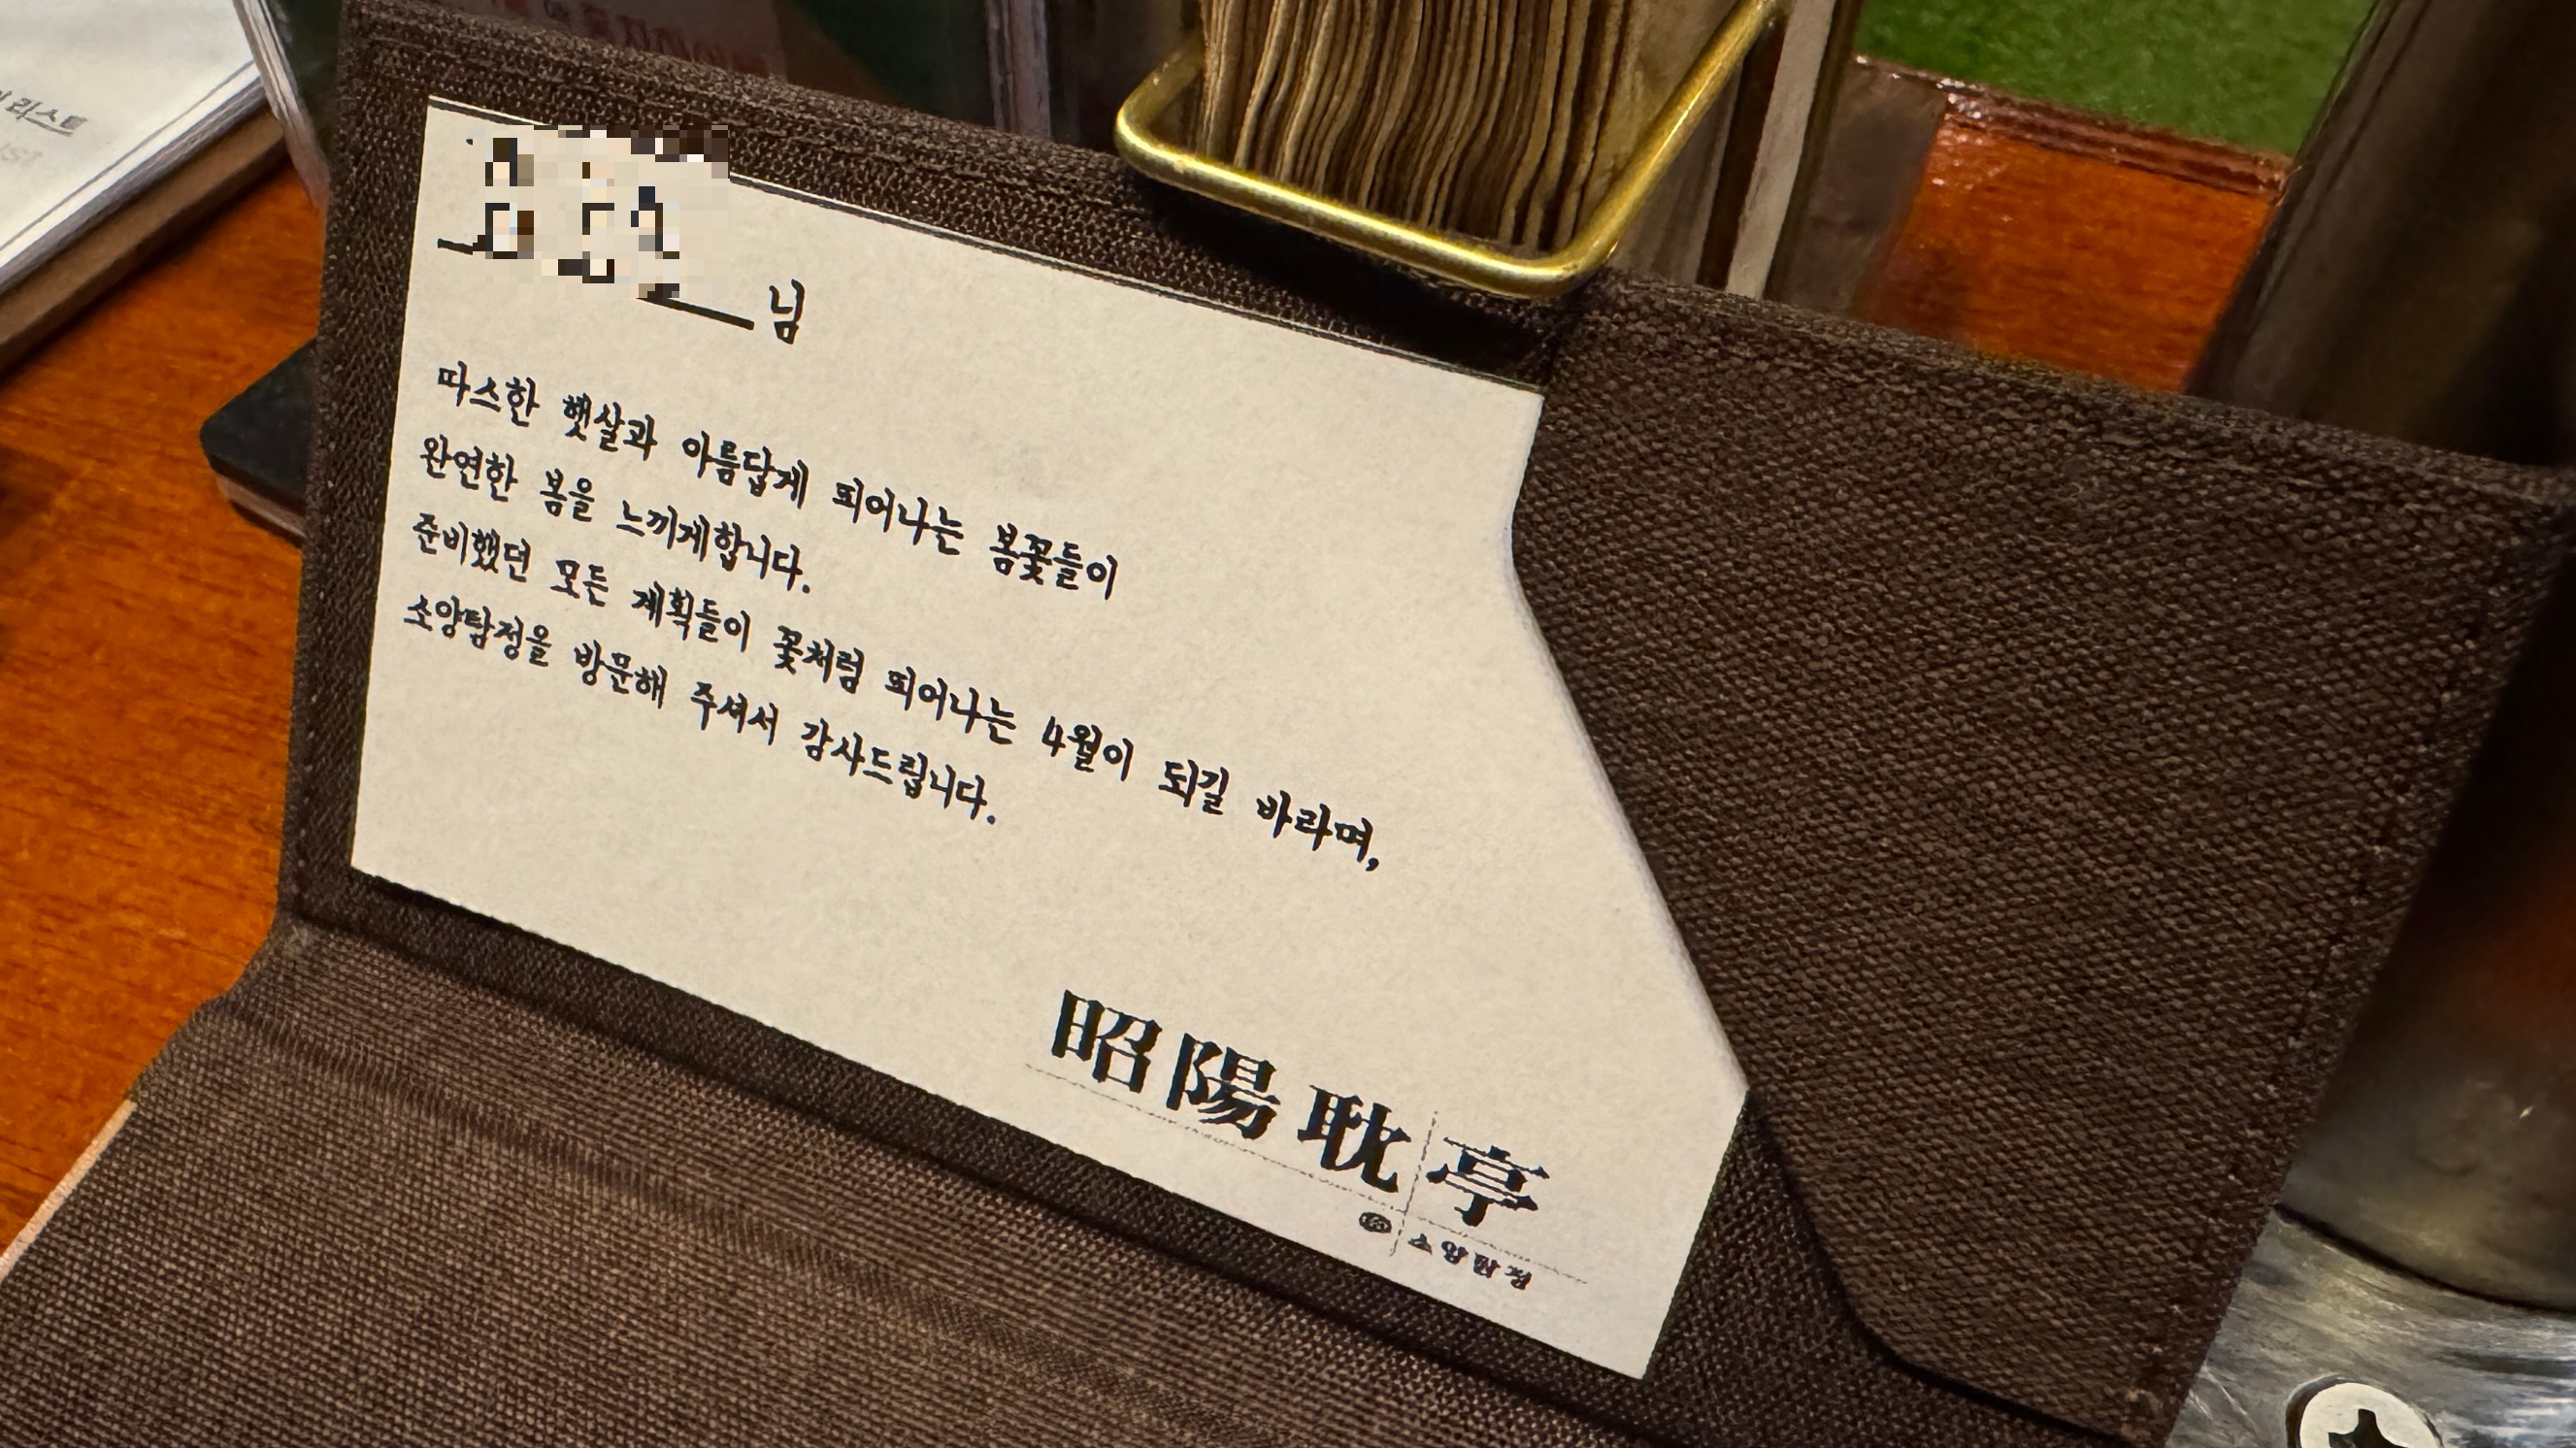 님
따스한 햇살과 아름답게 피어나는 봄꽃들이
완연한 봄을 느끼게합니다.
준비했던 모든 계획들이 꽃처럼 피어나는 4월이 되길 바라며,
소양탐정을 방문해 주셔서 감사드립니다.
昭陽耽亭
소양탐정
리스트